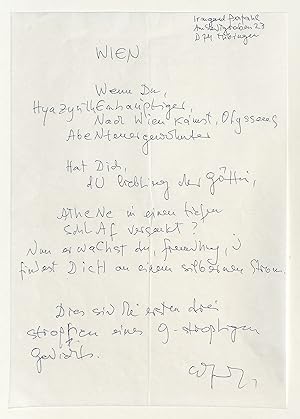 WIEN
Wenn Du,
HyaZyntHEnhäuptiger,
Nach Wien kämst, Odysseus,
AbeNteuergewohnter
Hat Dich,
dU liebling der göttin,
AtheNe in einen tiefen
SchlAf versenkt?
Nun erwachst du, fremdling,
findest DicH an einem silbernen Strom.
Dies sind die ersten drei
strophen eines 9-strophigen
gedichts.